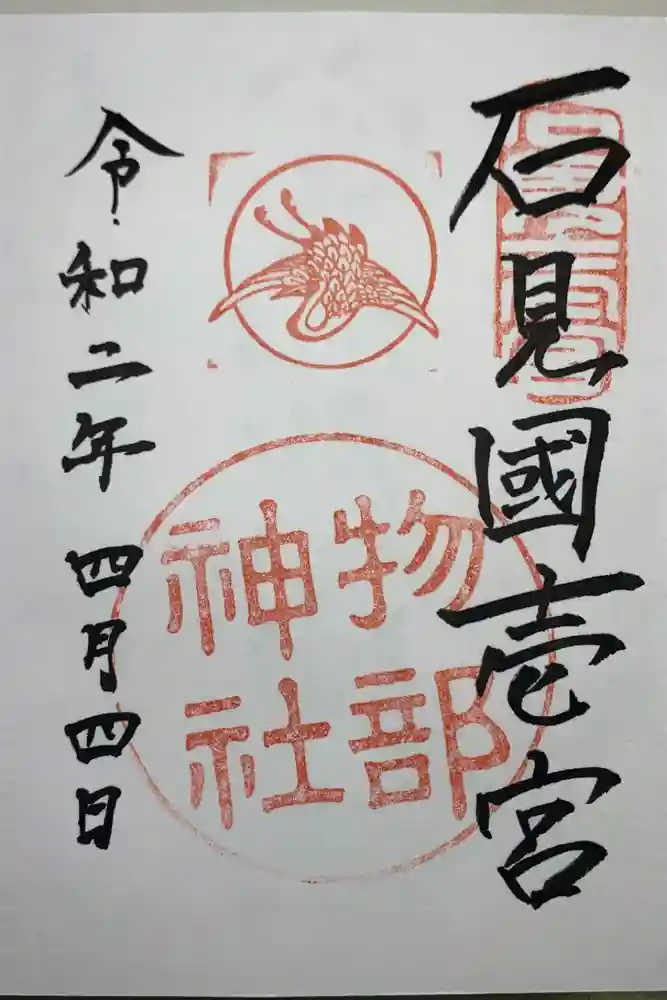 石見國壱宮
物部
神社
令和二年四月四日